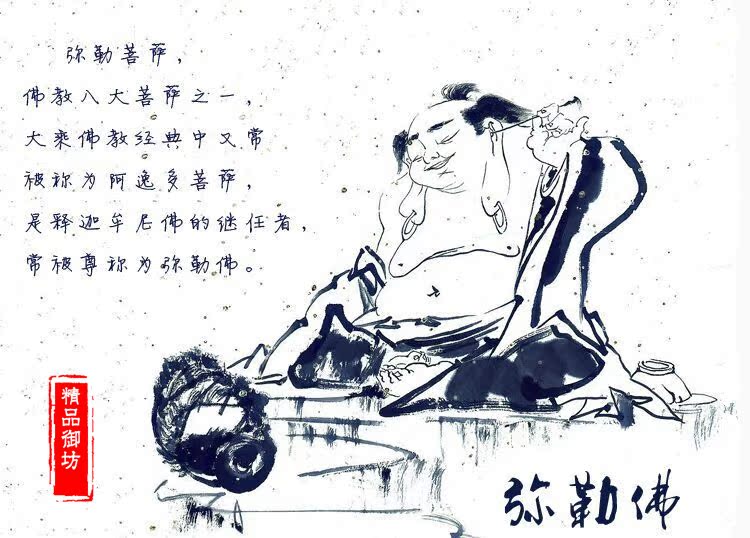 弥勒菩萨，
佛教八大菩萨之一，
大乘佛教经典中又常
被称为阿逸多菩萨，
是释迦牟尼佛的继任者，
常被尊称为弥勒佛。
精品御坊
弥勒佛